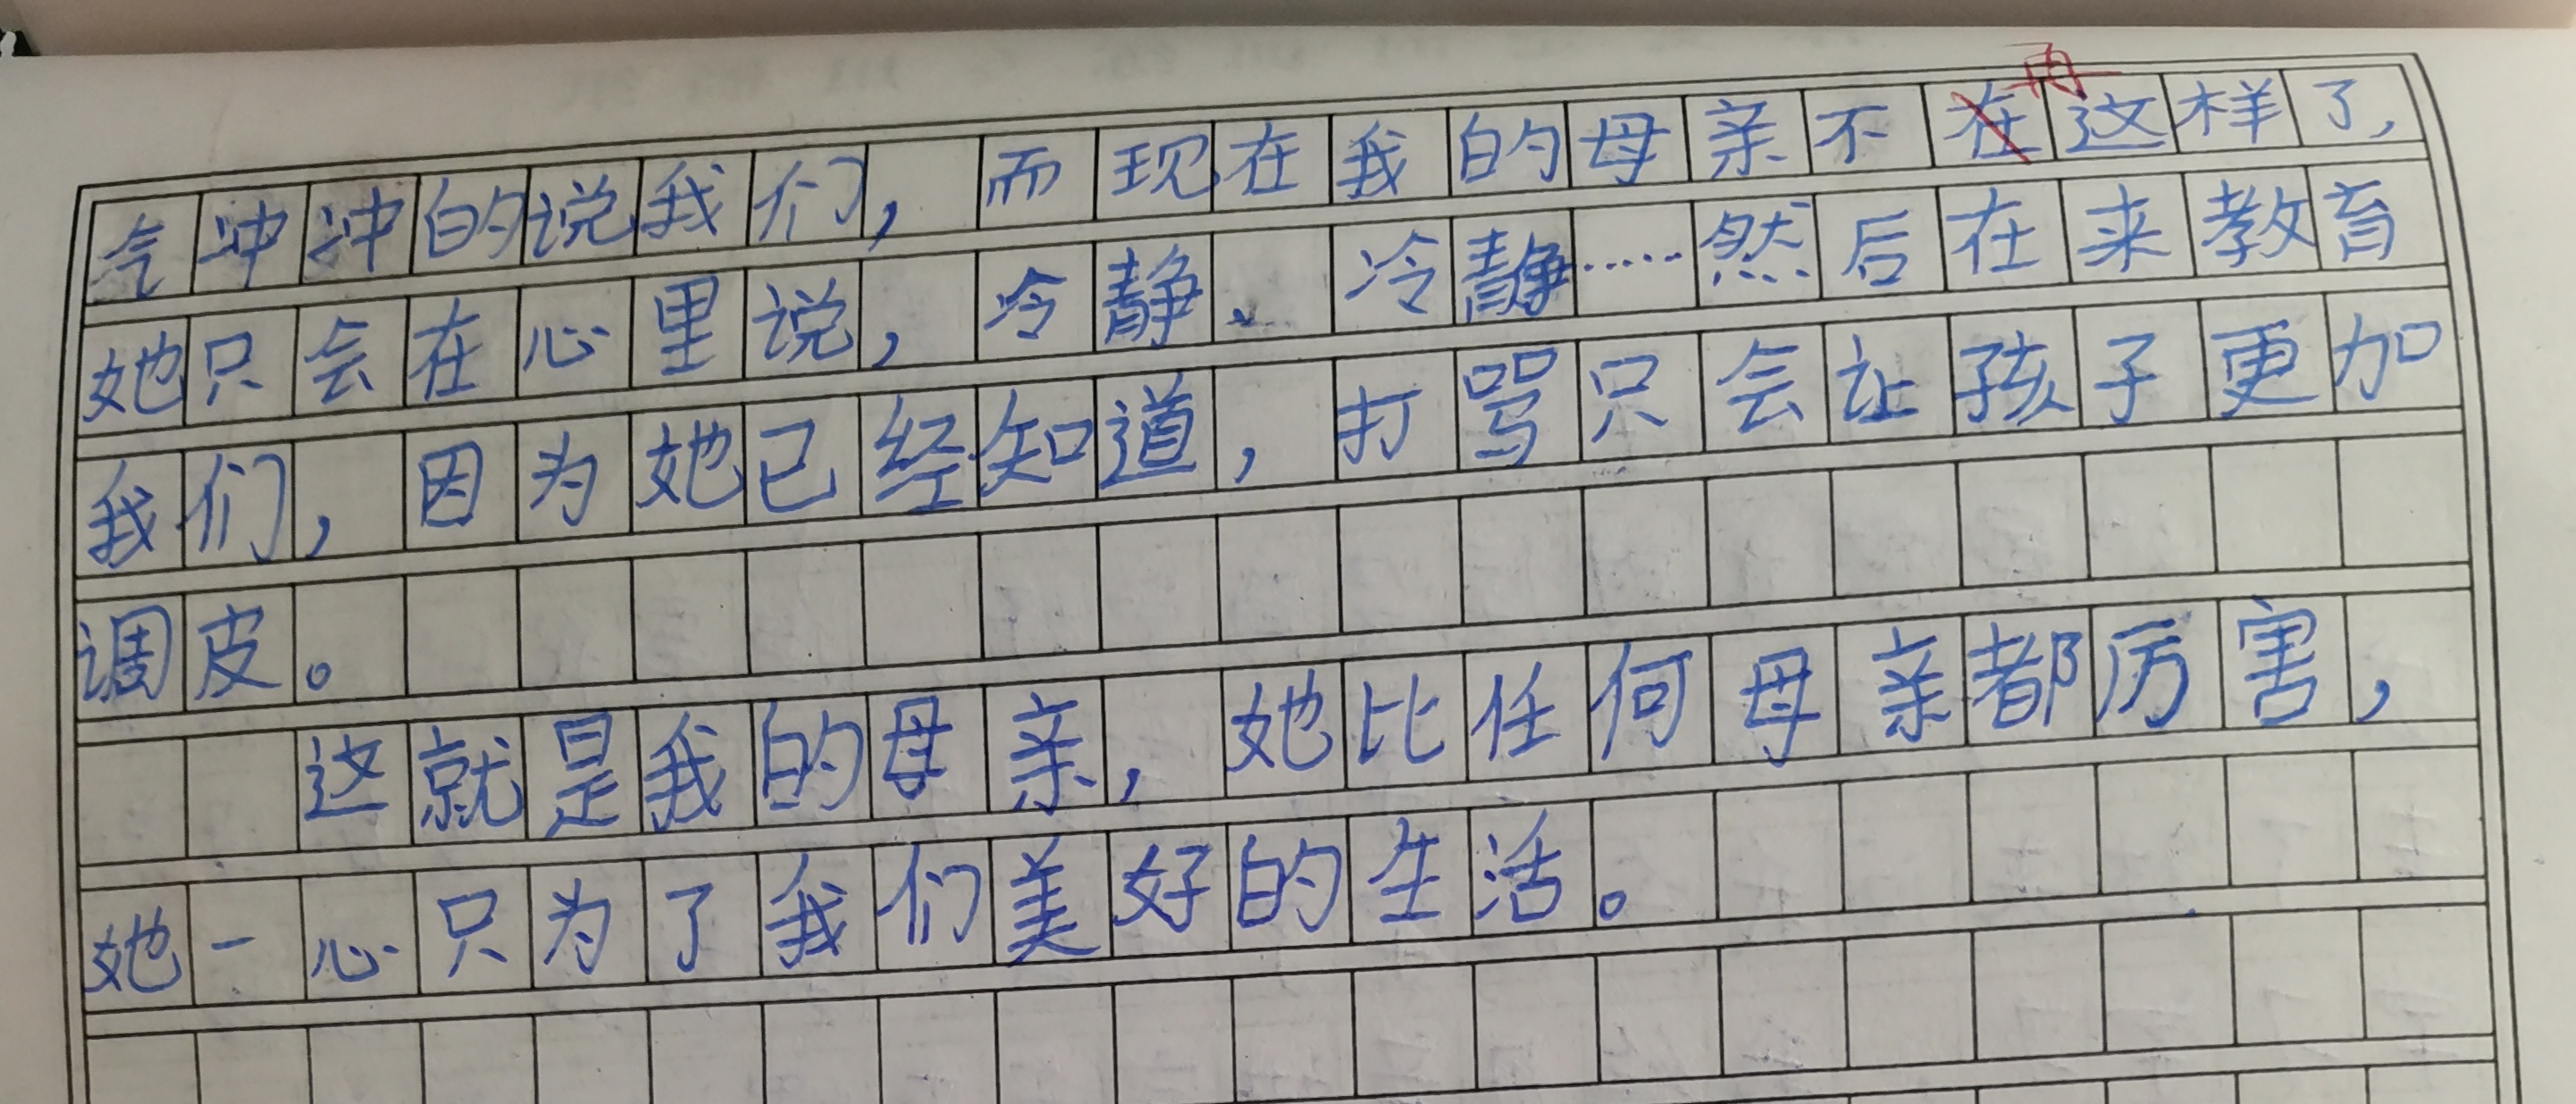 再
气冲冲的说我们，而现在我的母亲不在这样了，
她只会在心里说，冷静、冷静……然后在来教育
我们，因为她已经知道，打骂只会让孩子更加
调皮。
这就是我的母亲，她比任何母亲都厉害，
她一心只为了我们美好的生活。